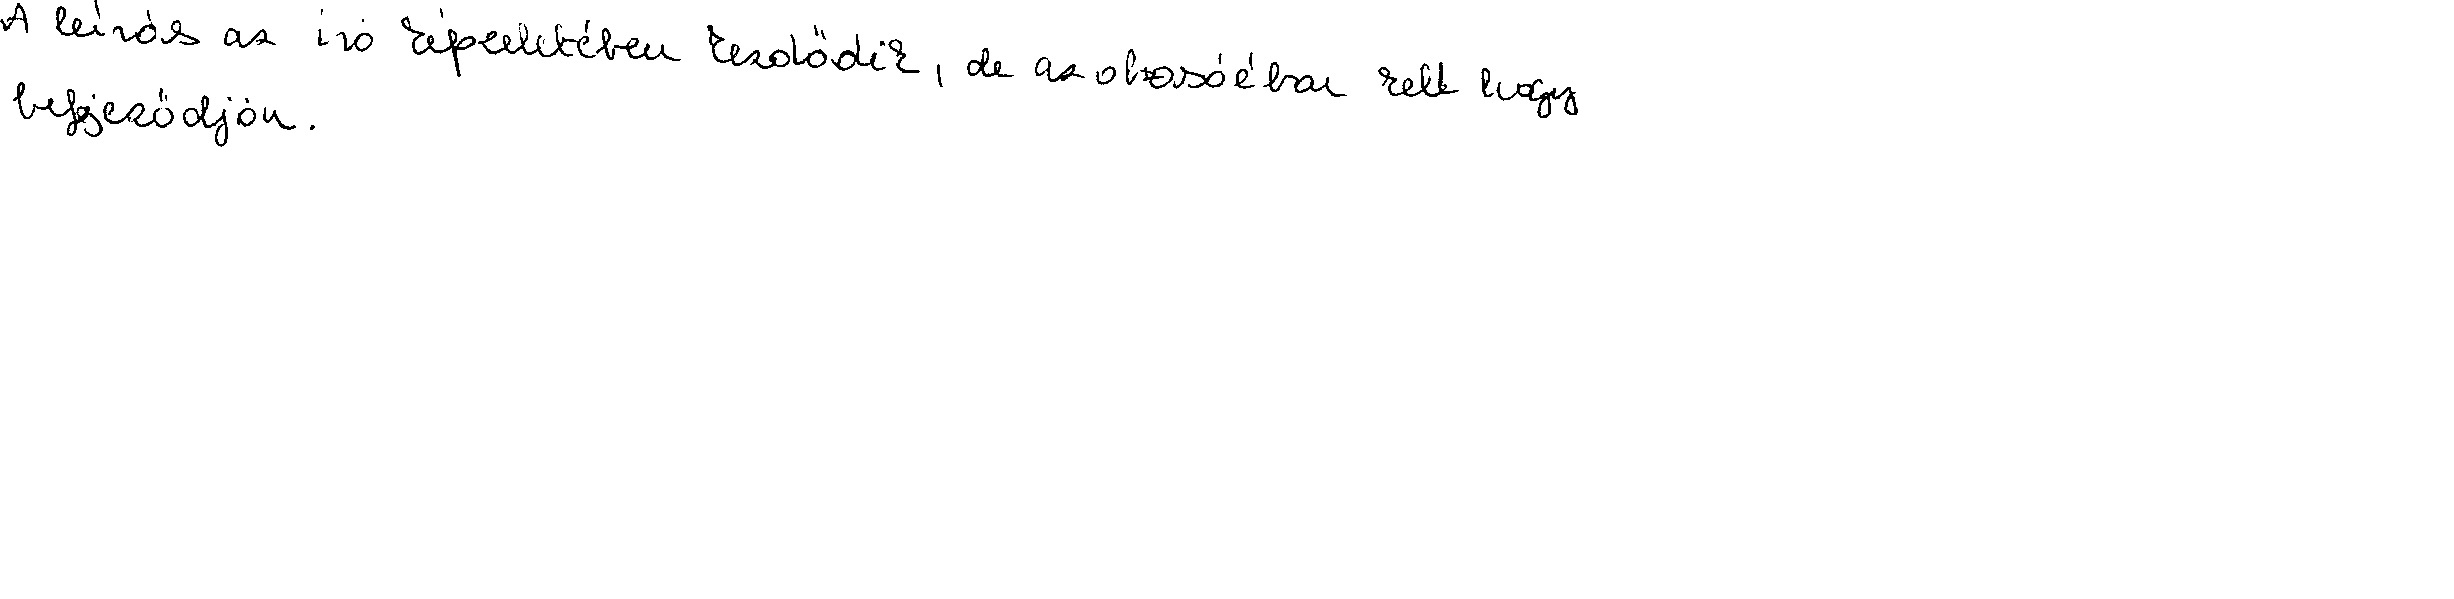 A leírás az író képzeletében kezdődik, de az olvasóéban kell hogy
befejeződjön.